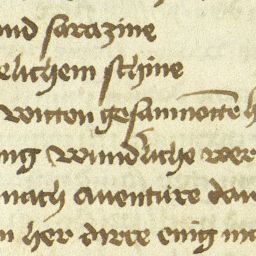 und sarazine
elichem schine
wirton gesamnotē h
ng wundliche wer
nach auenture dar
n her dirre einig m